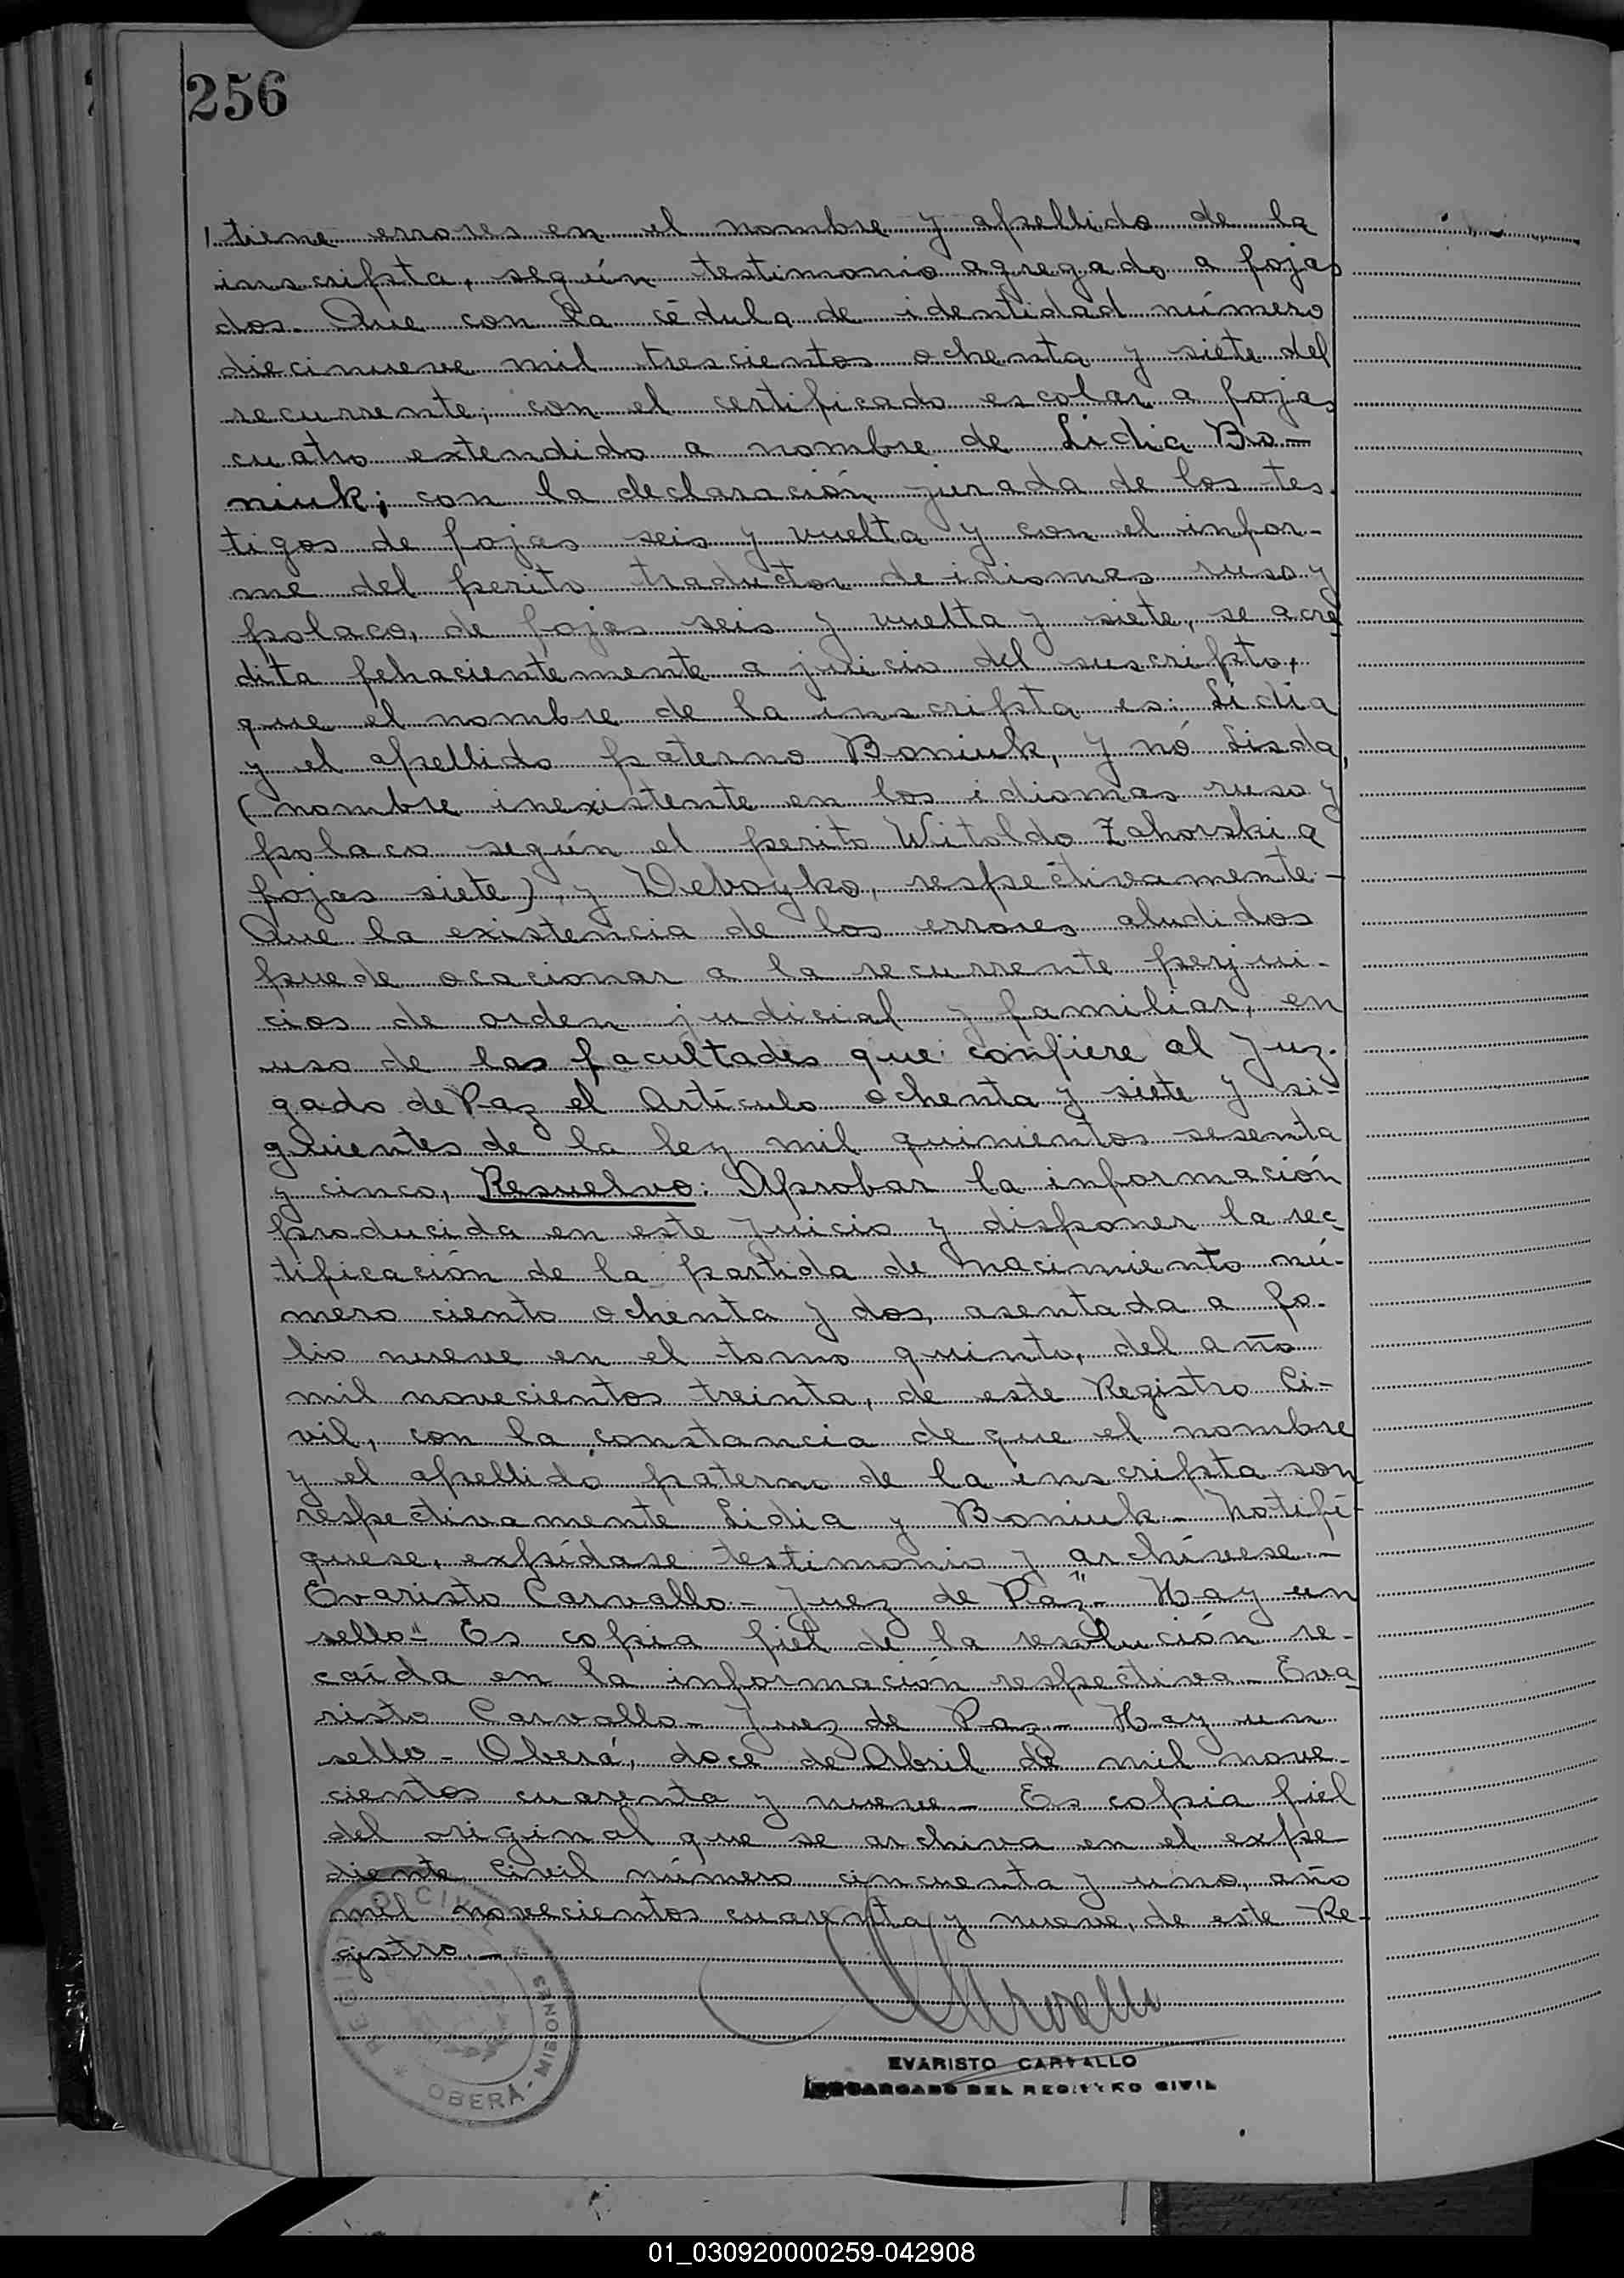 256
tiene errores en el nombre y apellido de la
inscripta, según testimonio agregado a fojas
dos. Que con la cédula de identidad número
diecinueve mil trescientos ochenta y siete del
recurrente; con el certificado escolar a fojas
cuatro extendido a nombre de Lidia Bo-
niuk; con la declaración jurada de los tes-
tigos de fojas seis y vuelta y con el infor-
me del perito traductor de idiomas ruso y
polaco, de fojas seis y vuelta y siete, se acre
dita fehacientemente a juicio del suscripto,
que el nombre de la inscripta es: Lidia
y el apellido paterno Boniuk, y nó Lisda,
(nombre inexistente en los idiomas ruso y
polaco según el perito Witoldo Zahorski a
fojas siete), y Weboyko, respectivamente-
Que la existencia de los errores aludidos
puede ocacionar a la recurrente perjui-
cios de orden judicial y familiar, en
uso de las facultades que confiere al Juz-
gado de Paz el Artículo ochenta y siete y si-
guientes de la ley mil quinientos sesenta
y cinco, Resuelvo: Aprobar la información
producida en este juicio y disponer la rec
tificación de la partida de nacimiento nú-
mero ciento ochenta y dos, asentada a fo-
lio nueve en el tomo quinto, del año
mil novecientos treinta, de este Registro Ci-
vil, con la constancia de que el nombre
y el apellido paterno de la inscripta son
respectivamente Lidia y Boniuk- Notifi-
quese, expídase testimonio y archívese.-
Evaristo Carvallo- Juez de Paz"- Hay un
sello"- Es copia fiel de la resolución re-
caída en la información respectiva- Eva
risto Carvallo- Juez de Paz- Hay un
sello- Oberá, doce de Abril de mil nove-
cientos cuarenta y nueve- Es copia fiel
del original que se archiva en el expe
diente Civil número cincuenta y uno, año
mil novecientos cuarenta y nueve, de este Re-
gistro.-
REGISTRO CIVIL
OBERÁ - MISIONES
EVARISTO CARVALLO
ENCARGADO DEL REGISTRO CIVIL
01_030920000259-042908